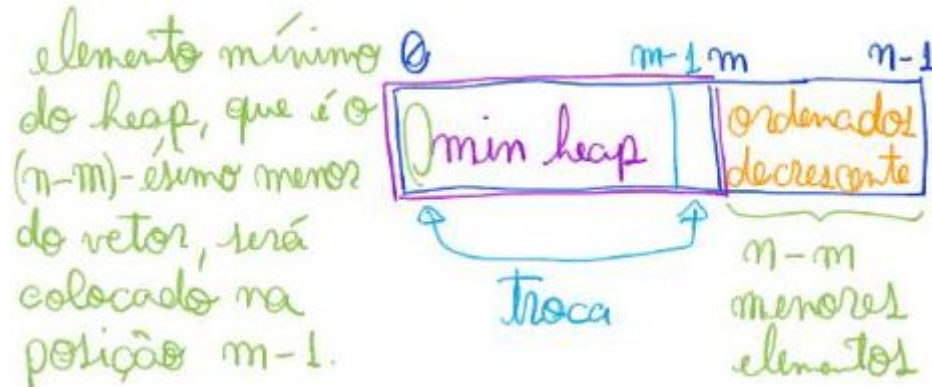 elemento mínimo
do heap, que é o
(n-m)-ésimo menor
do vetor, será
colocado na
posição m-1.
0 m-1 m n-1
min heap
ordenados
decrescente
troca
n-m
menores
elementos